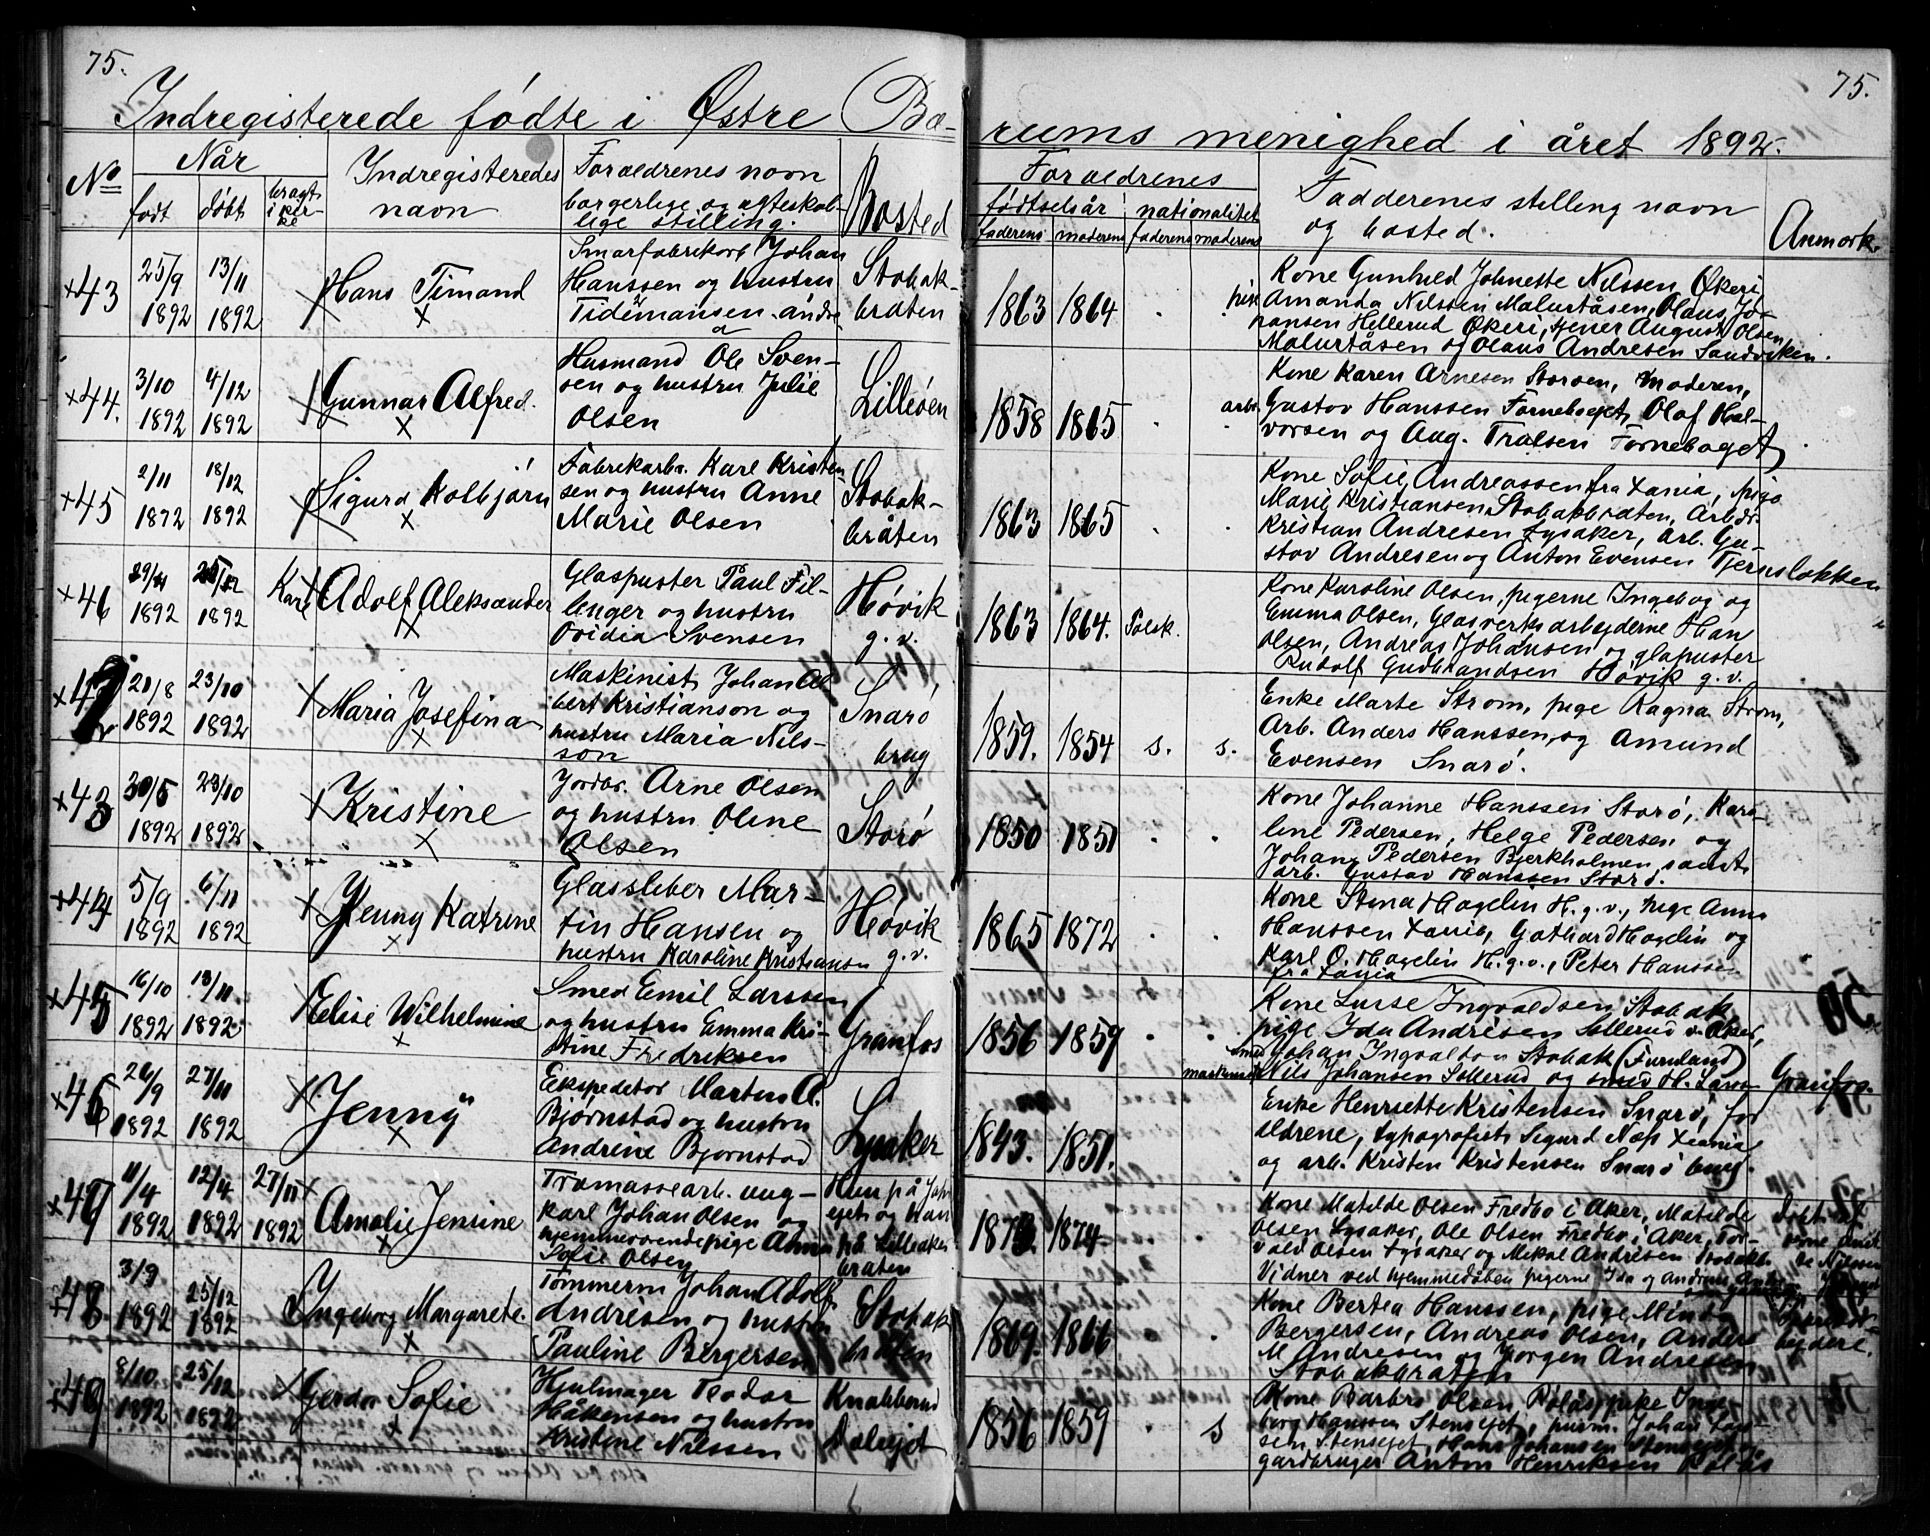 75.
75.
Indregisterede fødte i Østre Bæ-
rums menighed i året 1892.
No
Når
født
døbt
bragt
i kir-
ke
Indregisteredes
navn
Foraldrenes navn
borgerlige og agteskab-
lige stilling.
Bosted
Foraldrenes
fødtselsår
nationalitet
faderens
moderens
faderens
moderens
Fadderenes stilling navn
og bosted.
Anmærk.
+43
25/9
1892
13/11
1892
Hans Timand
Johan
Hanssen og hustru
Stabak-
bråten
1863
1864
Kone Gunhild Johnette Nilssen Økeri
Amanda Nilssen Malurtåsen, Olaus Jo-
hansen Hellerud Økeri, tjener August Olsen
Malurtåsen og Olaus Andresen Sandviken.
+44.
3/10
1892
4/12
1892
Gunnar Alfred.
Husmand Ole Sven-
sen og hustru Julie
Olsen
Lilleøen
1858
1865
Kone Karen Arnesen Storøen, Moderen,
arb. Gustav Hanssen Forneboget, Olaf Hal-
vorsen og Aug. Trulsen Forneboget
+45
2/11
1872
18/12
1892
Sigurd Kolbjørn
Fabrikarb. Karl Kristen
sen og hustru Anne
Marie Olsen
Stabak-
bråten
1863
1865
Kone Sofie Andreassen fra Xania, pige
Marie Kristiansen Stabakbråten, Arbdr.
Kristian Andresen Lysaker, arb. Gu-
stav Andresen og Anton Evensen Tjernsløkken
+46
1892
1892
Karl Adolf Aleksander
Glaspuster Paul Fil-
linger og hustru
Ovidia Svensen
Høvik
g. v.
1863
1864.
Polsk.
Kone Karoline Olsen, pigerne Ingebog og
Emma Olsen, Glasverksarbejderne Han
Olsen, Andreas Johansen og glapuster
Rudolf Gudbrandsen Høvik g. v.
+42
21/8
1892
23/10
1892
Maria Josefina
Maskinist Johan Al-
bert Kristianson og
hustru Maria Nils-
son
Snarø
brug
1859.
1854
s.
s.
Enke Marte Strøm, pige Ragna Strøm,
Arb. Anders Hanssen, og Amund
Evensen Snarø.
+43
30/5
1892
23/10
1892
Kristine
Jordbr. Arne Olsen
og hustru Oline
Olsen
Storø
1850
1851
Kone Johanne Hanssen Storø, Karo-
line Pedersen, Helge Pedersen og
Johan Pedersen Bjerkholmen samt
arb. Gustav Hanssen Storø.
+44
5/9
1892
6/11
1892
Jenny Katrine
Glassliber Mar-
tin Hansen og
hustru Karoline Kristiansen
Høvik
g. v.
1865
1872
Kone Stina Hagelin H. g. v., pige Anna
Hanssen Xania, Gothard Hagelin og
Karl O. Hagelin H. g. v., Peter Hansse
fra Xania
+45
16/10
1892
13/11
1892
Elise Wilhelmine
Smed Emil Larssen
og hustru Emma Kri-
stine Fredriksen
Granfos
1856
1859
Kone Lurse Ingvaldsen Stabak
pige Ida Andresen Sollerud v. Aker,
smed Johan Ingvaldsen Stabak (Furuland)
maskinist Nils Johansen Sollerud og smed H. Larss
Granfos.
+46
26/9
1892
27/11
1892
Jenny
Ekspeditør Martin A.
Bjørnstad og hustru
Andrine Bjørnstad
Lysaker
1843.
1851.
Enke Henriette Kristensen Snarø, for
eldrene, typografist Sigurd Næs Xania
og arb. Kristen Kristensen Snarø brug.
+47
11/4
1892
12/4
1892
27/11
1892
Amalie Jensine
Træmassearb. ung-
karl Johan Olsen og
hjemmeværendepige Anna
Sofie Olsen
Hun på Jar
eget og han
på Lilleaker
bråten
1873
1874
Kone Matilde Olsen Fredbo i Aker, Matilde
Olsen Lysaker, Ole Olsen Fredbo i Aker, Tor-
vald Olsen Lysaker og Mikal Andresen Stabakbr.
Vidner ved hjemmedåben pigerne Ida og Andrine
+48.
3/9
1892
25/12
1892
Ingeborg Margarete.
Tømmerm. Johan Adolf
Andresen og hustru
Pauline Bergersen
Stabak
bråten
1869.
1866
Kone Bertea Hanssen, pige Minda
Bergersen, Andreas Olsen, Anders
M Andresen og Jørgen Andresen
Stabakbråten
+49
8/10
1892
25/12
1892
Gerda Sofie
Hjulmager Teodor
Håkensen og hustru
Kristine Nilssen
Knabberud
Dælejet
1856
1859
s
Kone Barbro Olsen Róläs, pike Inge
borg Hanssen Stenseget, murm. Johan Lars
sen, Stenseget, Hans Johansen Stenseget og
gardbruger Anton Henriksen